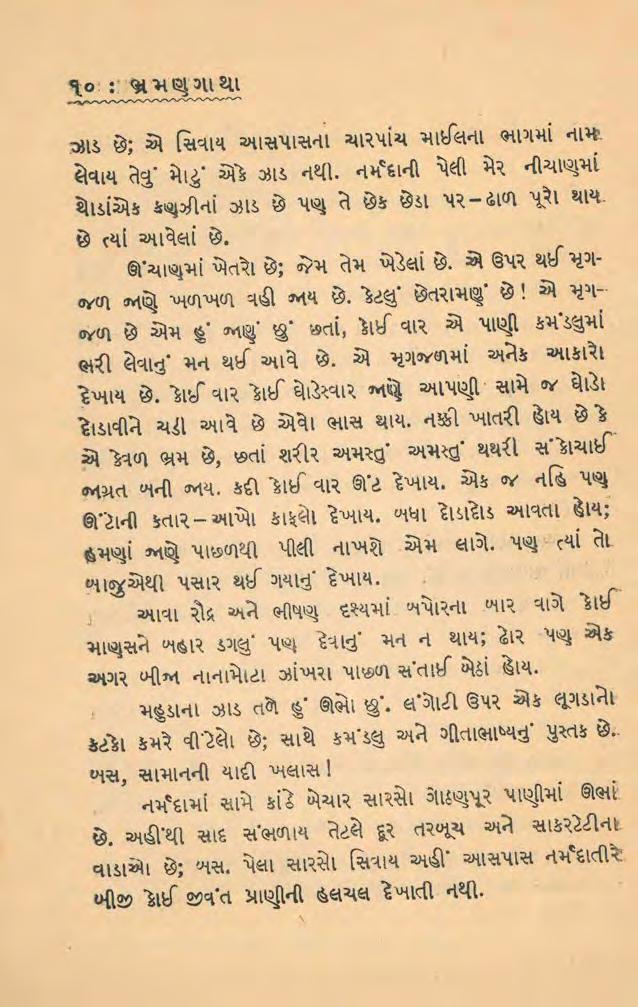 ૧૦ : ભ્રમણગાથા
ઝાડ છે; એ સિવાય આસપાસના ચારપાંચ માઈલના ભાગમાં નામ
લેવાય તેવું મોટું એકે ઝાડ નથી. નર્મદાની પેલી મેર નીચાણમાં
થોડાંએક કણઝીનાં ઝાડ છે પણ તે છેક છેડા પર – ઢાળ પૂરો થાય
છે ત્યાં આવેલાં છે.
ઊંચાણમાં ખેતરો છે; જેમ તેમ ખેડેલાં છે. એ ઉપર થઈ મૃગ-
જળ જાણે ખળખળ વહી જાય છે. કેટલું છેતરામણું છે! એ મૃગ-
જળ છે એમ હું જાણું છું છતાં, કોઈ વાર એ પાણી કમંડલુમાં
ભરી લેવાનું મન થઈ આવે છે. એ મૃગજળમાં અનેક આકારો
દેખાય છે. કોઈ વાર કોઈ ઘોડેસ્વાર જાણે આપણી સામે જ ઘોડો
દોડાવીને ચડી આવે છે એવો ભાસ થાય. નક્કી ખાતરી હોય છે કે
એ કેવળ ભ્રમ છે, છતાં શરીર અમસ્તું અમસ્તું થથરી સંકોચાઈ
જાગ્રત બની જાય. કદી કોઈ વાર ઊંટ દેખાય. એક જ નહિ પણ
ઊંટોની કતાર – આખો કાફલો દેખાય. બધા દોડાદોડ આવતા હોય;
હમણાં જાણે પાછળથી પીલી નાખશે એમ લાગે. પણ ત્યાં તો
બાજુએથી પસાર થઈ ગયાનું દેખાય.
આવા રૌદ્ર અને ભીષણ દૃશ્યમાં બપોરના બાર વાગે કોઈ
માણસને બહાર ડગલું પણ દેવાનું મન ન થાય; ઢોર પણ એક
અગર બીજા નાનામોટા ઝાંખરા પાછળ સંતાઈ બેઠાં હોય.
મહુડાના ઝાડ તળે હું ઊભો છું. લંગોટી ઉપર એક લૂગડાનો
કટકો કમરે વીંટેલો છે; સાથે કમંડલુ અને ગીતાભાષ્યનું પુસ્તક છે.
બસ, સામાનની યાદી ખલાસ!
નર્મદામાં સામે કાંઠે બેચાર સારસો ગોઠણપૂર પાણીમાં ઊભાં
છે. અહીંથી સાદ સંભળાય તેટલે દૂર તરબૂચ અને સાકરટેટીના
વાડાઓ છે; બસ. પેલા સારસો સિવાય અહીં આસપાસ નર્મદાતીરે
બીજી કોઈ જીવંત પ્રાણીની હલચલ દેખાતી નથી.